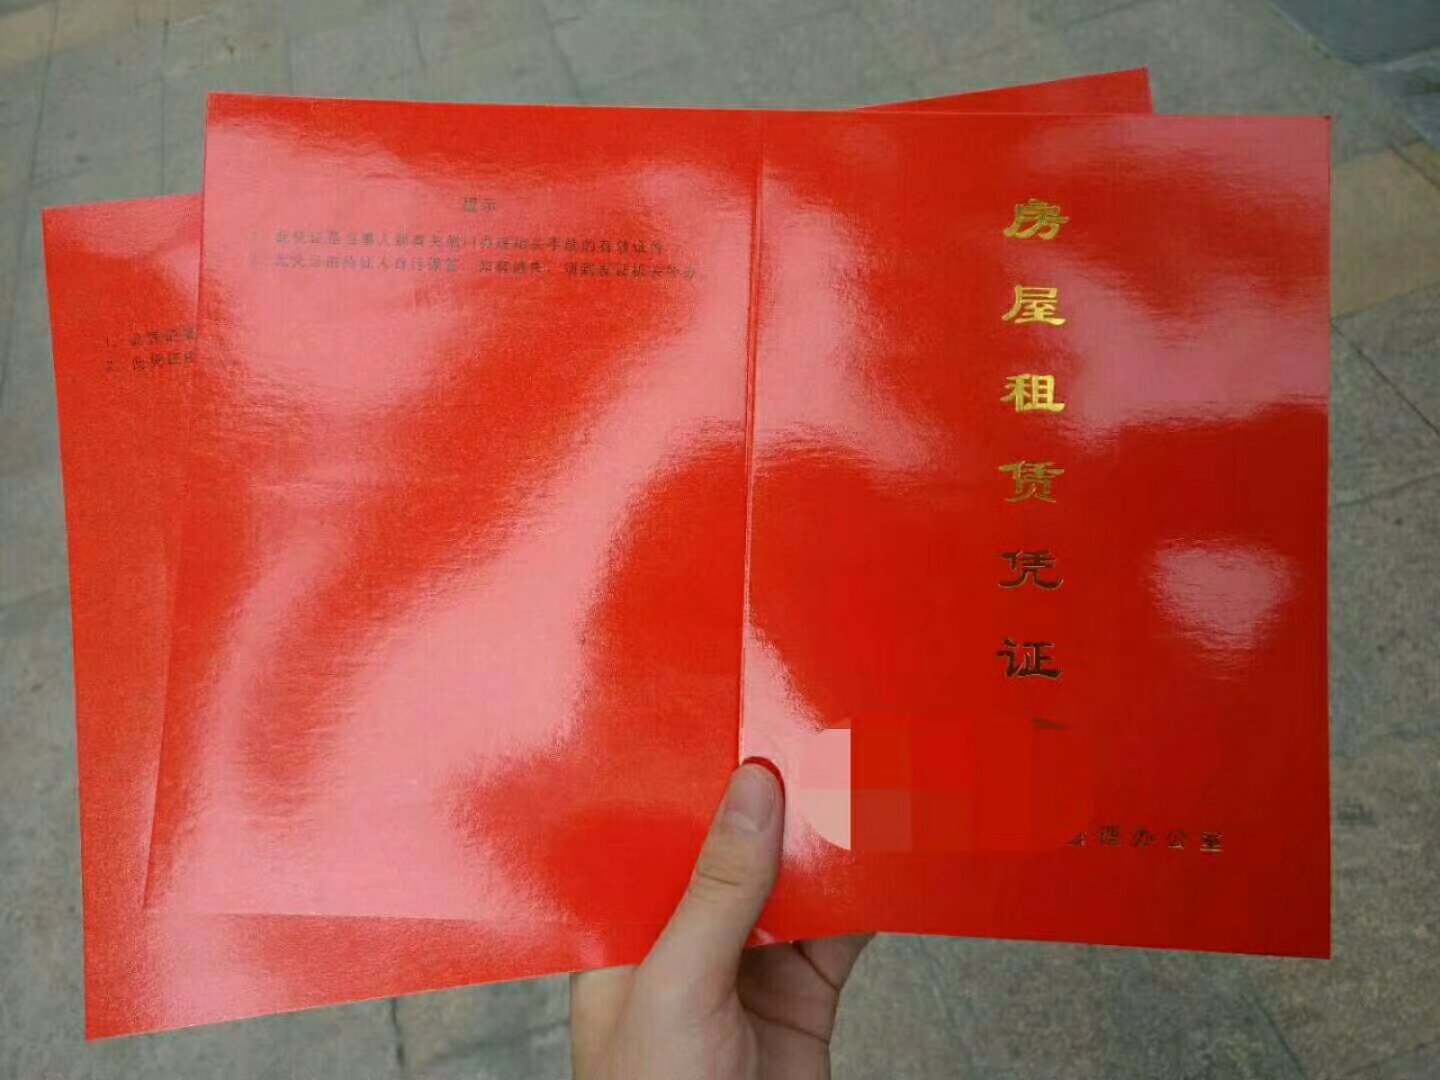 提示
1、此凭证是当事人到有关部门办理相关手续的有效证件
2、此凭证由持证人自行保管，如有遗失，请到发证机关补办
1、此凭证是
2、此凭证由
房屋租赁凭证
管理办公室